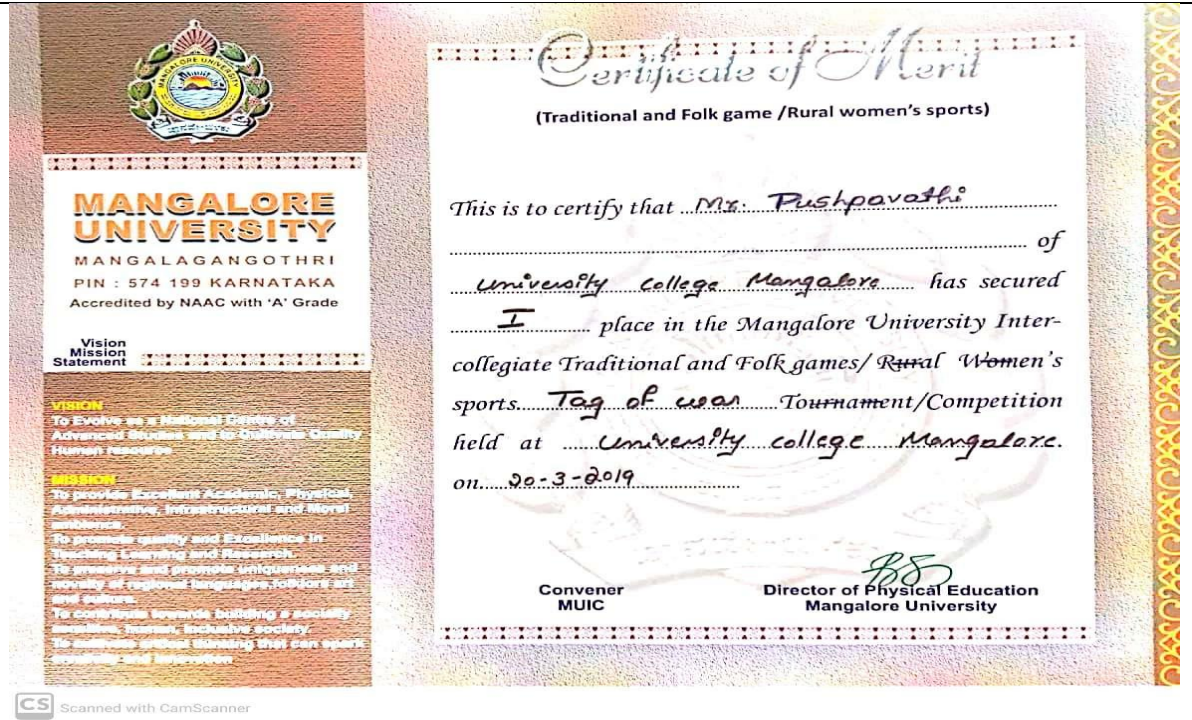 MANGALORE UNIVERSITY
MANGALORE
UNIVERSITY
MANGALAGANGOTHRI
PIN : 574 199 KARNATAKA
Accredited by NAAC with 'A' Grade
Vision
Mission
Statement
VISION
To Evolve as a National Centre of
Advanced Studies and to Cultivate Quality
Human resource
MISSION
To provide Excellent Academic, Physical,
Administrative, Infrastructural and Moral
ambience.
To promote quality and Excellence in
Teaching Learning and Research.
To preserve and promote uniqueness and
novelty of regional languages folklore art
and culture.
To contribute towards building a socially
human, inclusive society
To thinking that can spark
and innovation
Certificate of Merit
(Traditional and Folk game /Rural women's sports)
This is to certify that Mr. Pushpavathi
of
University College Mangalore has secured
I place in the Mangalore University Inter-
collegiate Traditional and Folk games/ Rural Women's
sports Tag of war Tournament/Competition
held at University college Mangalore.
on 20-3-2019
Convener
MUIC
Director of Physical Education
Mangalore University
CS Scanned with CamScanner